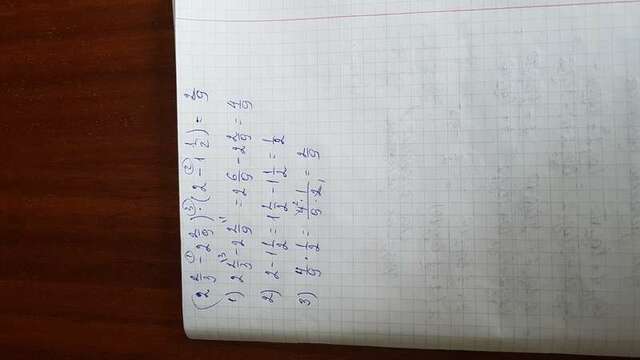 (2 2/3 - 2 2/9) · (2 - 1 1/2) = 2/9
1) 2 2/3 - 2 2/9 = 2 6/9 - 2 2/9 = 4/9
2) 2 - 1 1/2 = 1 2/2 - 1 1/2 = 1/2
3) 4/9 · 1/2 = 4 · 1/9 · 2 = 2/9